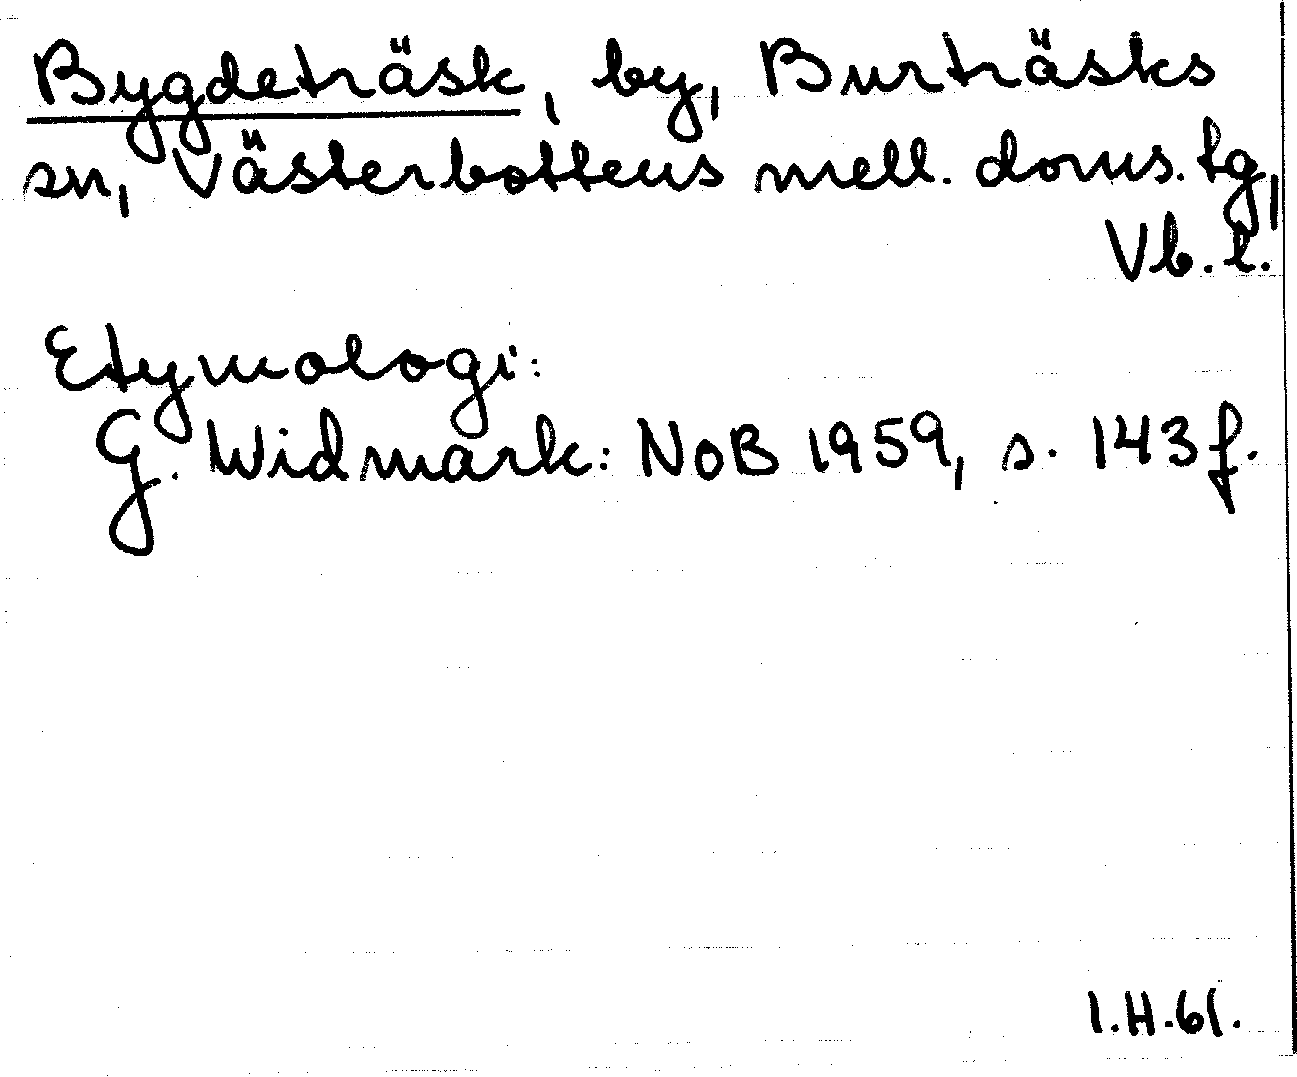 Bygdeträsk, by, Burträsks
sn, Västerbottens mell. doms. tg,
Vb. l.
Etymologi:
G. Widmark: NoB 1959, s. 143 f.
I.H.61.